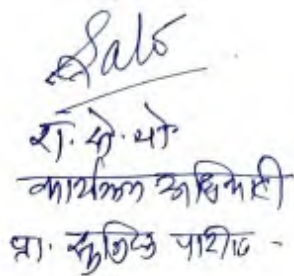 रा. से. यो
कार्यक्रम अधिकारी
प्रा. सुजित पाटील -